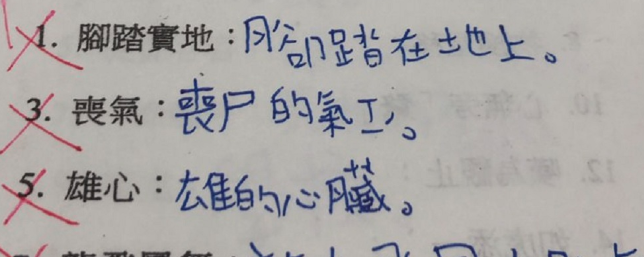 1. 腳踏實地：腳踏在土地上。
3. 喪氣：喪尸的氣工。
5. 雄心：雄的心臟。